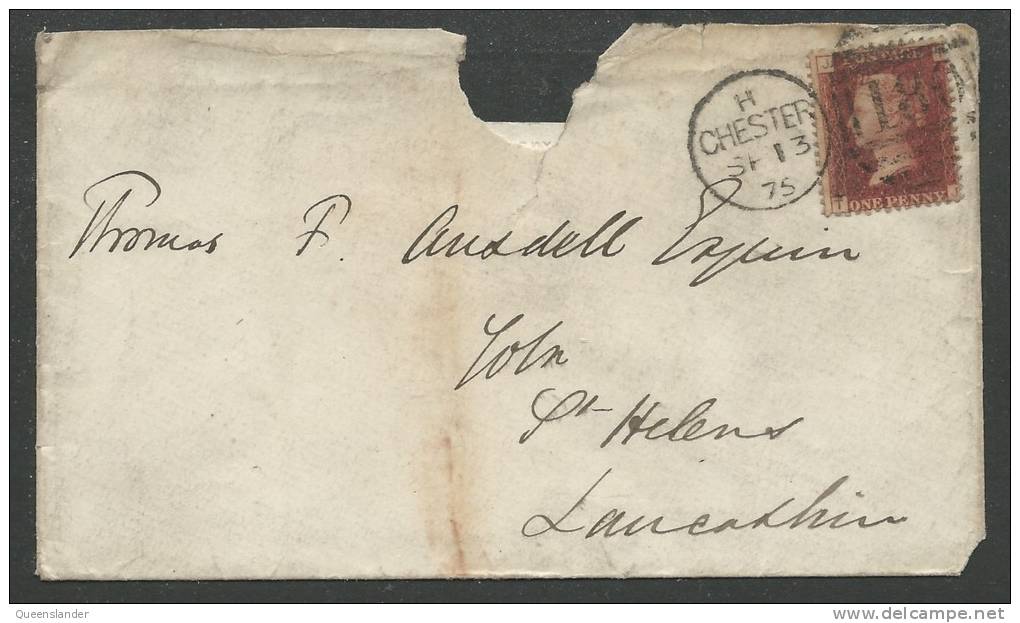 H
CHESTER
SP 13
75
J
T ONE PENNY J
Thomas F. Ansdell Esquire
St Helens
Lancashire
Queenslander
http://www.delcampe.net